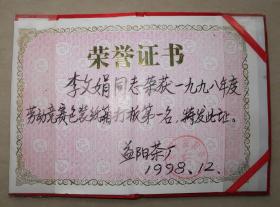 荣誉证书
李文娟同志荣获一九九八年度
劳动竞赛包装纸箱打板第一名,特发此证。
益阳茶厂
1998.12.